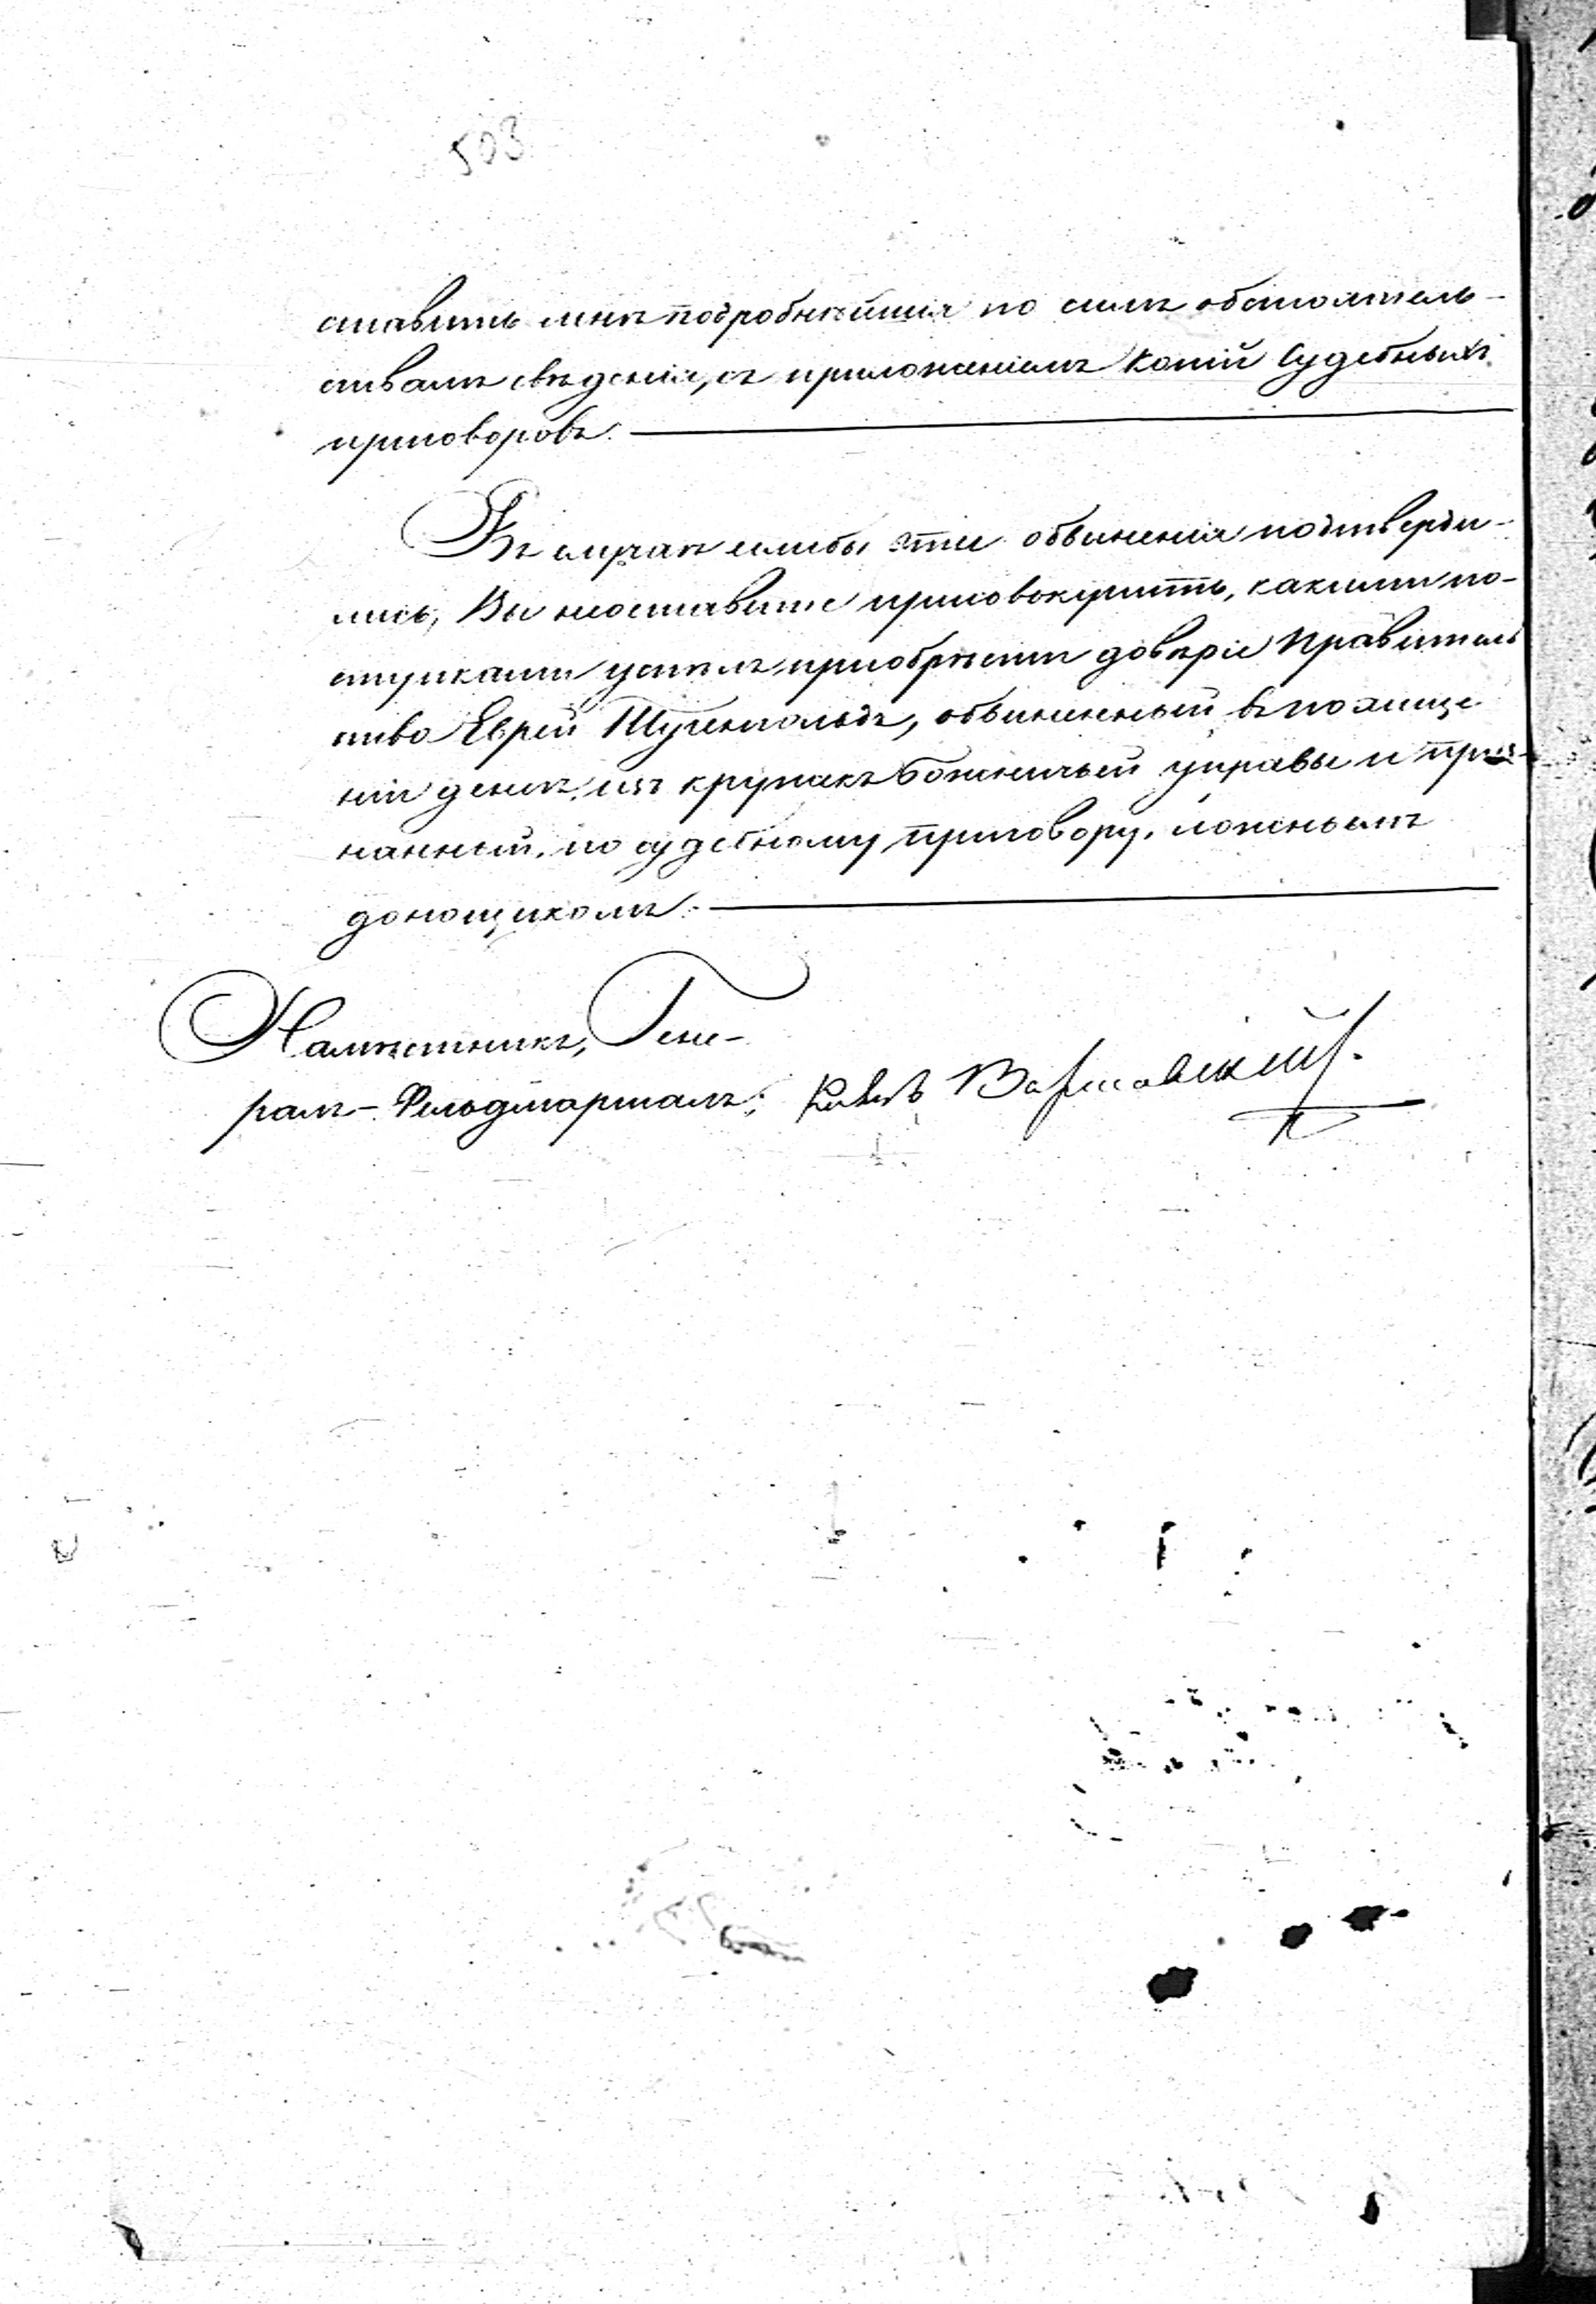 503
ставить мнѣ подробнѣйшія по симъ обстоятель-
ствамъ свѣденія, съ приложеніемъ копій Судебныхъ
приговоровъ.
Въ случаѣ еслибы эти обвиненія подтверди-
лись, Вы неоставите присовокупить, какими по-
ступками успѣлъ пріобрѣсти довѣріе Правитель
ства Еврей Тугенгольдъ, обвиненный въ похище
ніи денегъ изъ кружекъ Божничьей управы и приз-
нанный, по судебному приговору, ложнымъ
доносщикомъ.
Намѣстникъ, Гене-
ралъ-Фельдмаршалъ, Князь Варшавскій